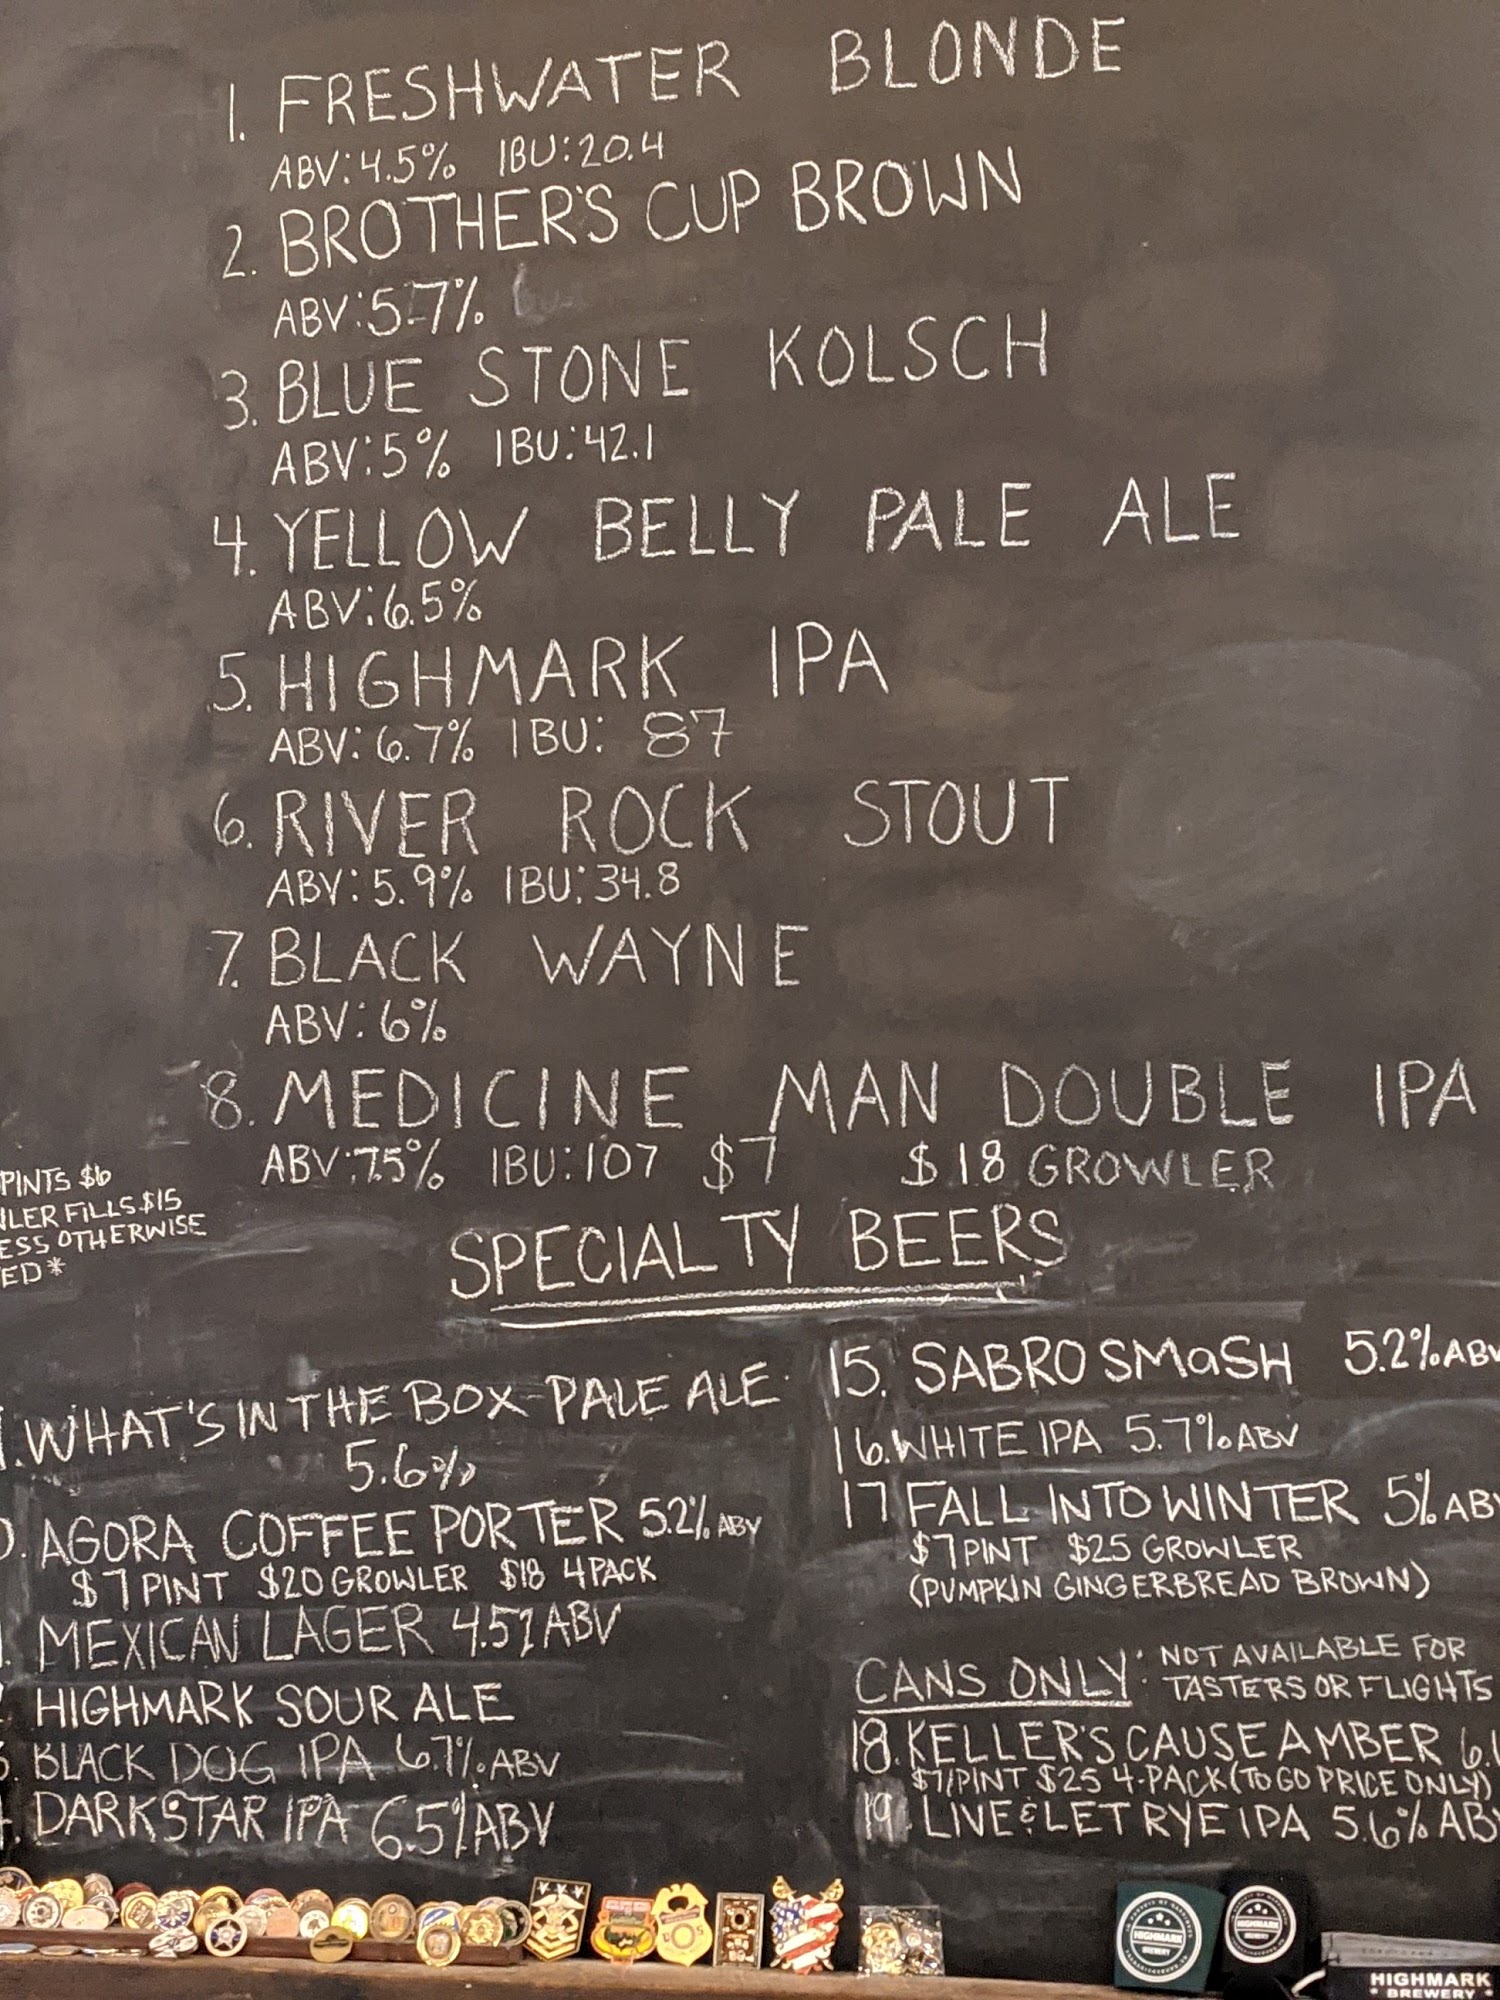 1. FRESHWATER BLONDE
ABV:4.5% IBU:20.4
2. BROTHER'S CUP BROWN
ABV:5.7%
3. BLUE STONE KOLSCH
ABV:5% IBU:42.1
4. YELLOW BELLY PALE ALE
ABV:6.5%
5. HIGHMARK IPA
ABV:6.7% IBU: 87
6. RIVER ROCK STOUT
ABV:5.9% IBU:34.8
7. BLACK WAYNE
ABV:6%
8. MEDICINE MAN DOUBLE IPA
ABV:7.5% IBU:107 $7 $18 GROWLER
PINTS $6
LER FILLS $15
ESS OTHERWISE
ED*
SPECIALTY BEERS
. WHAT'S IN THE BOX PALE ALE
5.6%
. AGORA COFFEE PORTER 5.2% ABV
$7 PINT $20 GROWLER $18 4 PACK
. MEXICAN LAGER 4.5% ABV
HIGHMARK SOUR ALE
. BLACK DOG IPA 6.7% ABV
. DARKSTAR IPA 6.5% ABV
15. SABRO SMaSH 5.2% ABV
16. WHITE IPA 5.7% ABV
17 FALL INTO WINTER 5% AB
$7 PINT $25 GROWLER
(PUMPKIN GINGERBREAD BROWN)
CANS ONLY: NOT AVAILABLE FOR
TASTERS OR FLIGHTS
18. KELLER'S CAUSE AMBER 6.
$7/PINT $25 4-PACK (TO GO PRICE ONLY)
19. LIVE & LET RYE IPA 5.6% AB
HIGHMARK
BREWERY
HIGHMARK
BREWERY
HIGHMARK
BREWERY